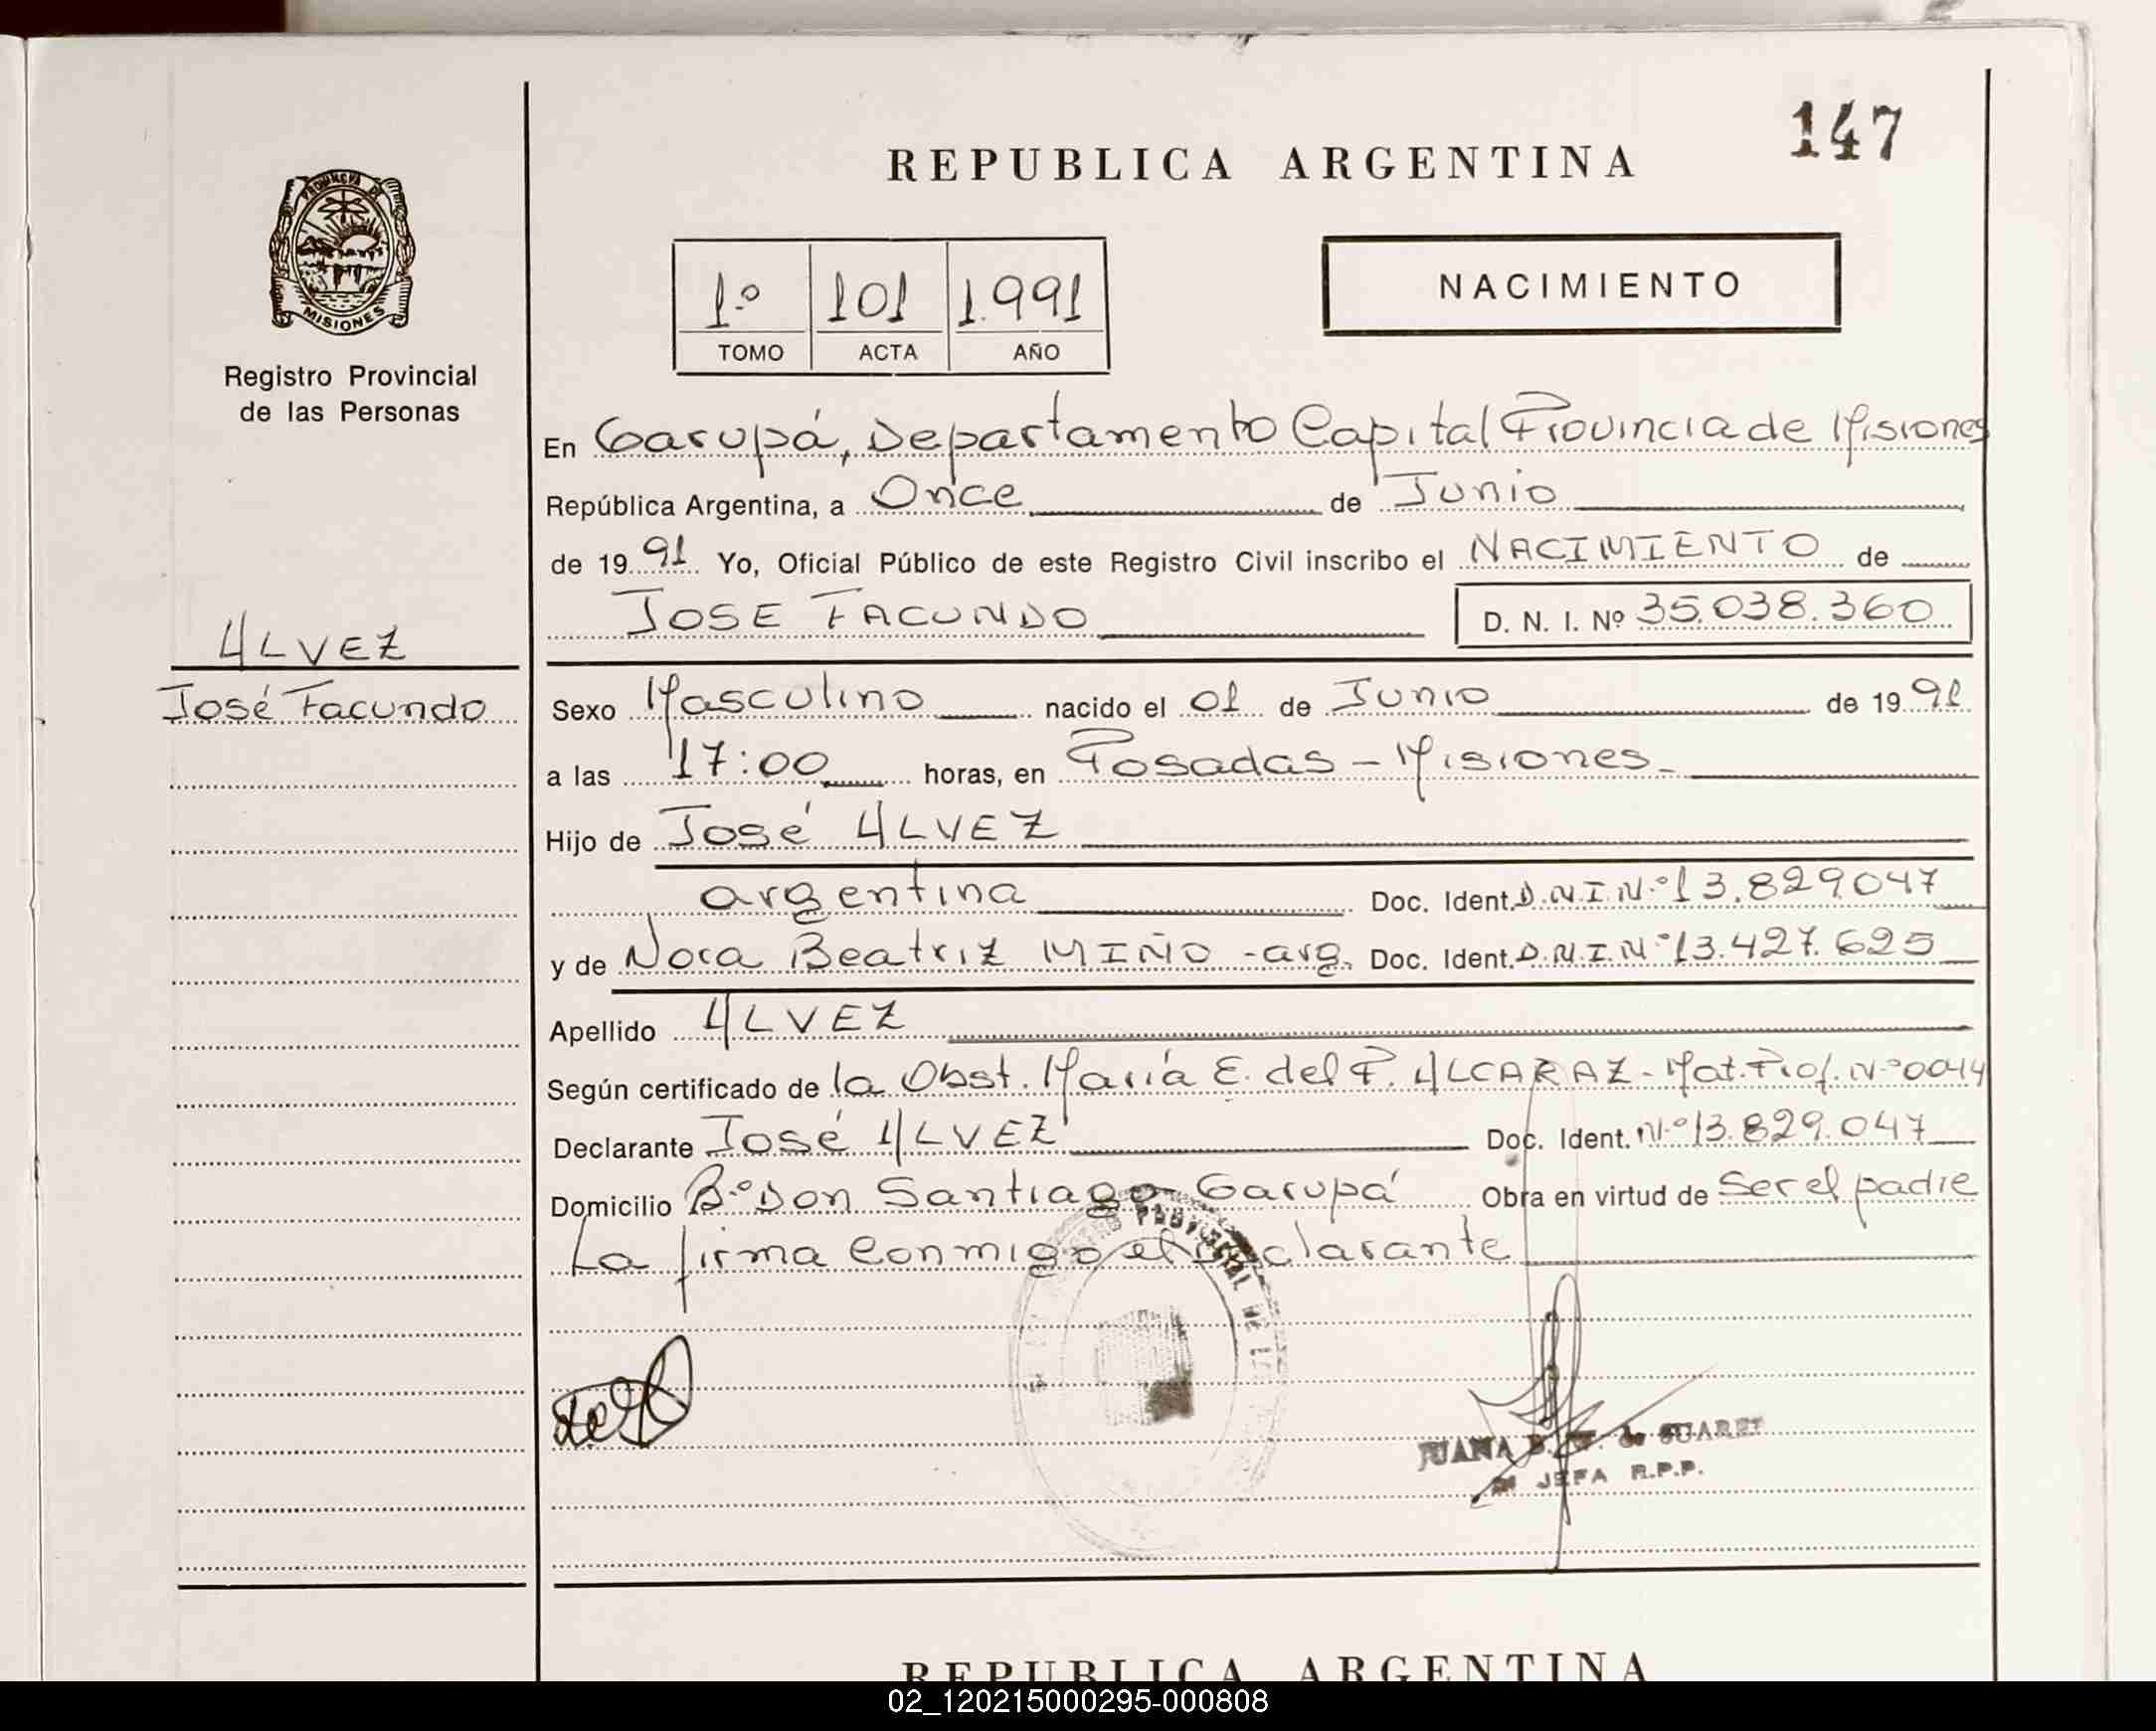 147
REPUBLICA ARGENTINA
PROVINCIA DE
MISIONES
Registro Provincial
de las Personas
1º 101 1.991
TOMO ACTA AÑO
NACIMIENTO
En Garupá, Departamento Capital Provincia de Misiones
República Argentina, a Once de Junio
de 1991 Yo, Oficial Público de este Registro Civil inscribo el NACIMIENTO de
JOSE FACUNDO D. N. I. Nº 35.038.360
ALVEZ
José Facundo
Sexo Masculino nacido el 01 de Junio de 1991
a las 17:00 horas, en Posadas - Misiones -
Hijo de José ALVEZ
argentina Doc. Ident. D.N.I.Nº 13.829.047
y de Nora Beatriz MIÑO - arg. Doc. Ident. D.N.I.Nº 13.427.625
Apellido ALVEZ
Según certificado de la Obst. María E. del P. ALCARAZ - Mat. Prof. Nº 0044
Declarante José ALVEZ Doc. Ident. Nº 13.829.047
Domicilio Bº Don Santiago Garupá Obra en virtud de Ser el padre
La firma conmigo el declarante
PROVINCIAL DE
JUANA de SUAREZ
JEFA R.P.P.
REPUBLICA ARGENTINA
02_120215000295-000808